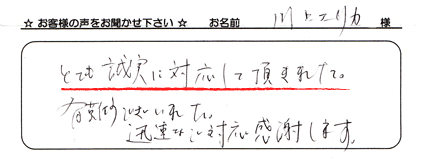 ☆ お客様の声をお聞かせ下さい ☆ お名前 川上エリカ 様
とても誠実に対応して頂きました。
有難うございました。
迅速なご対応感謝します。